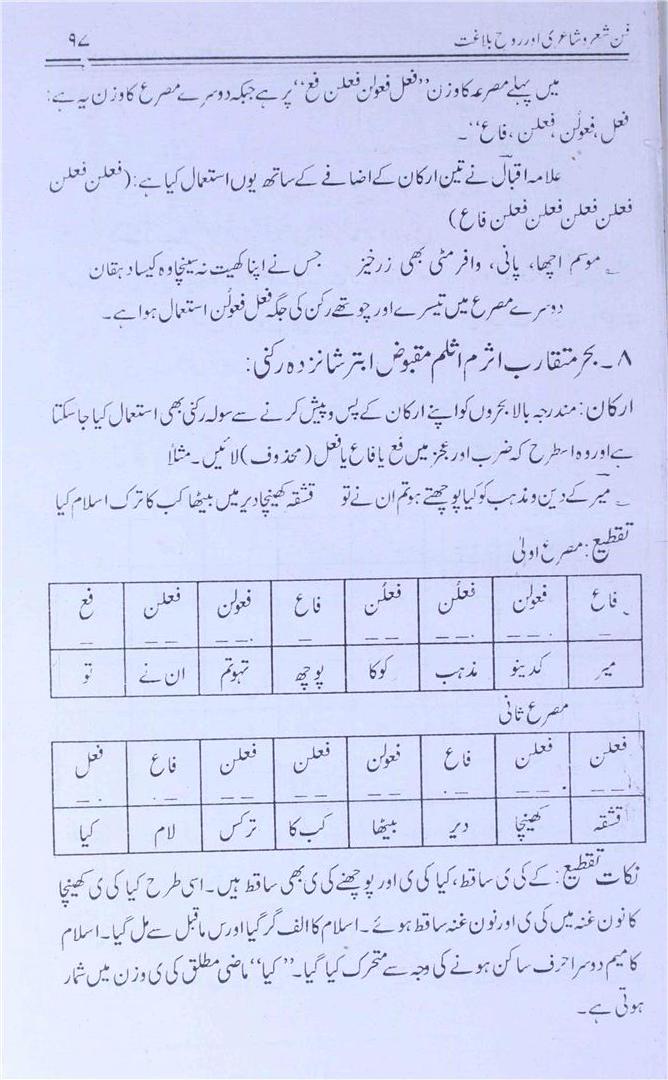 فن شعر و شاعری اور روح بلاغت ۹۷
میں پہلے مصرعہ کا وزن ”فعل فعولن فعلن فع“ پر ہے جبکہ دوسرے مصرع کا وزن یہ ہے:
فعل، فعولُن، فعلن، فاع“۔
علامہ اقبالؔ نے تین ارکان کے اضافے کے ساتھ یوں استعمال کیا ہے: (فعلن فعلن
فعلن فعلن فعلن فعلن فاع)
؎ موسم اچھا، پانی، وافر مٹی بھی زرخیز جس نے اپنا کھیت نہ سینچا وہ کیسا دہقان
دوسرے مصرع میں تیسرے اور چوتھے رکن کی جگہ فعل فعولُن استعمال ہوا ہے۔
۸۔ بحر متقارب اثرم اثلم مقبوض ابتر شانزدہ رکنی:
ارکان: مندرجہ بالا بحروں کو اپنے ارکان کے پس و پیش کرنے سے سولہ رکنی بھی استعمال کیا جا سکتا
ہے اور وہ اسطرح کہ ضرب اور عجز میں فع یا فاع یا فعل (محذوف) لائیں۔ مثلاً
؎ میرؔ کے دین و مذہب کو کیا پوچھتے ہو تم ان نے تو قشقہ کھینچا دیر میں بیٹھا کب کا ترک اسلام کیا
تقطیع: مصرع اولیٰ
فاع فعولن فعلُن فعلُن فاع فعولن فعلن فع
میر کدینو مذہب کوکا پوچھ تہوتم ان نے تو
مصرع ثانی
فعلن فعلن فاع فعولن فعلن فعلن فاع فعل
قشقہ کھینچا دیر بیٹھا کب کا ترکس لام کیا
نکات تقطیع: کے کی ی ساقط، کیا کی ی اور پوچھنے کی ی بھی ساقط ہیں۔ اسی طرح کیا کی ی کھینچا
کا نون غنہ میں کی ی اور نون غنہ ساقط ہوئے۔ اسلام کا الف گر گیا اور س ماقبل سے مل گیا۔ اسلام
کا میم دوسرا حرف ساکن ہونے کی وجہ سے متحرک کیا گیا۔ ”کیا“ ماضی مطلق کی ی وزن میں شمار
ہوتی ہے۔